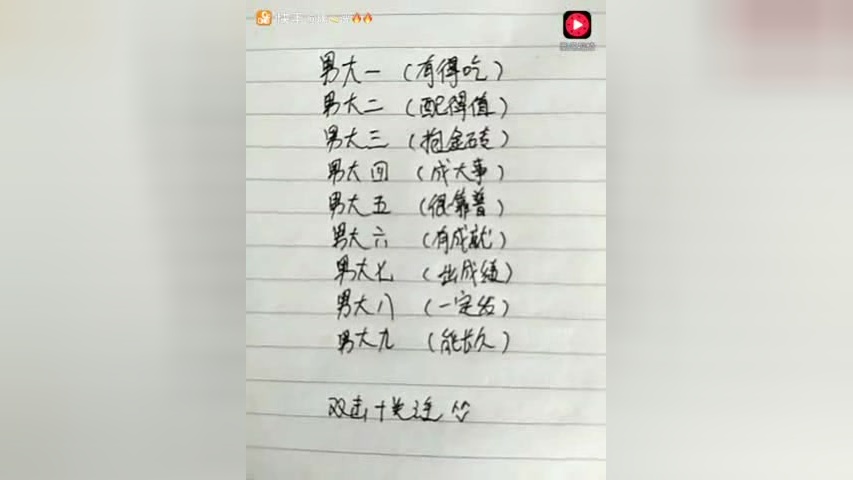 男大一（有得吃）
男大二（配得值）
男大三（抱金砖）
男大四（成大事）
男大五（很靠普）
男大六（有成就）
男大七（出成绩）
男大八（一定发）
男大九（能长久）
双击+关注